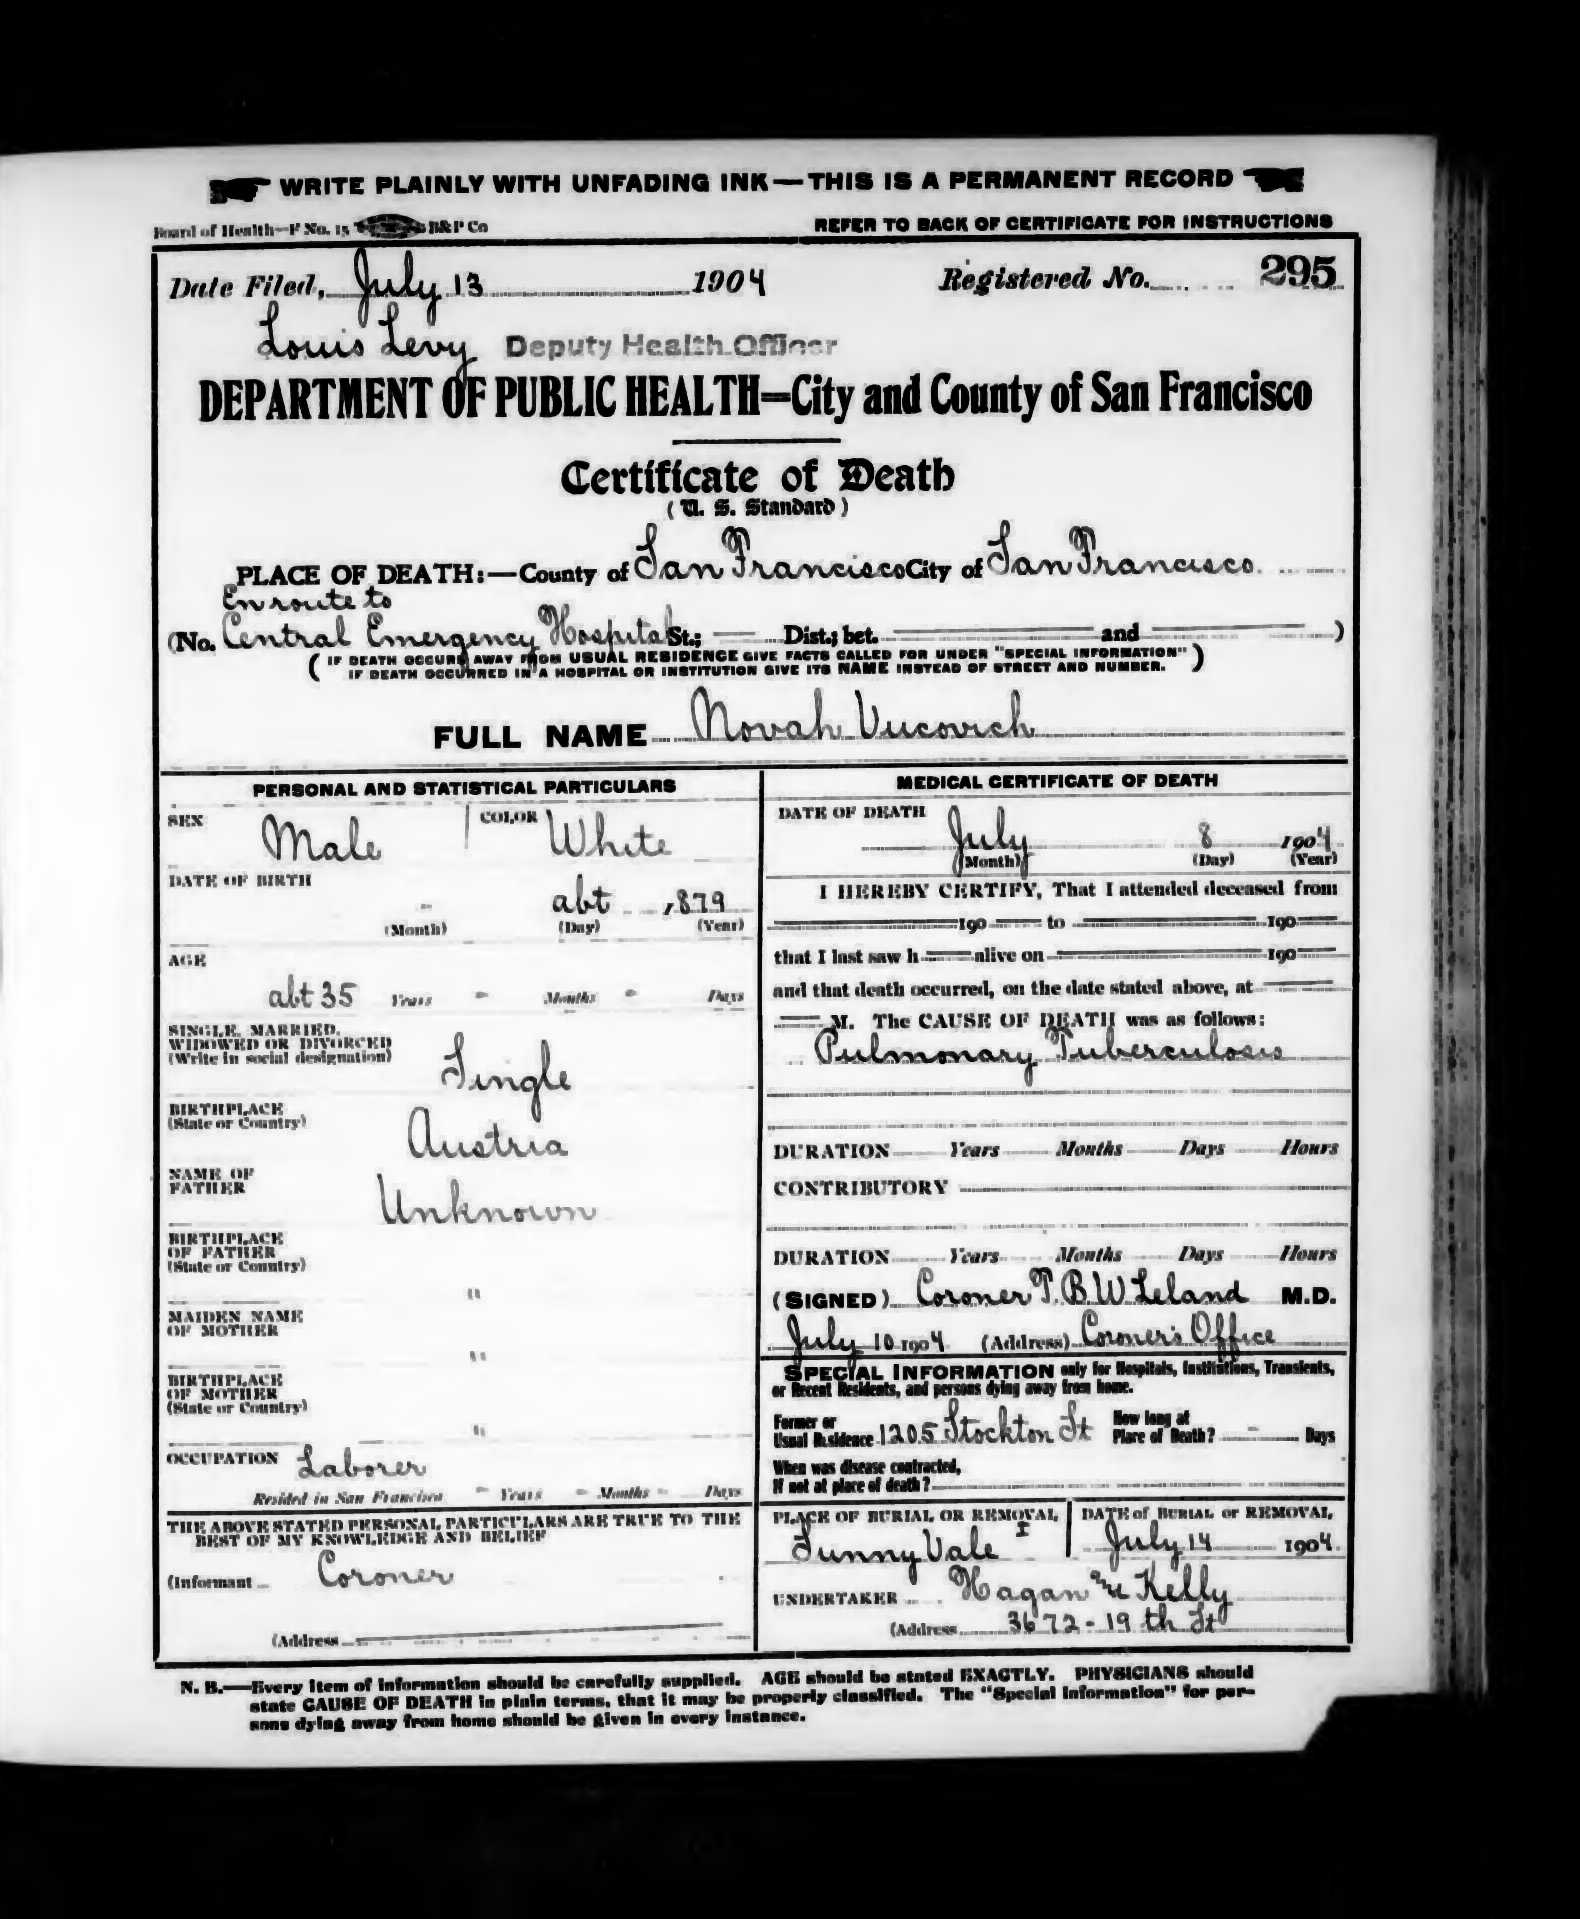 WRITE PLAINLY WITH UNFADING INK—THIS IS A PERMANENT RECORD
Board of Health—F No. 15 B&P Co
REFER TO BACK OF CERTIFICATE FOR INSTRUCTIONS
Date Filed, July 13 1904 Registered No. 295
Louis Levy Deputy Health Officer
DEPARTMENT OF PUBLIC HEALTH=City and County of San Francisco
Certificate of Death
(U. S. Standard)
PLACE OF DEATH:—County of San Francisco City of San Francisco
En route to
(No. Central Emergency Hospital St.; Dist.; bet. and )
(IF DEATH OCCURS AWAY FROM USUAL RESIDENCE GIVE FACTS CALLED FOR UNDER "SPECIAL INFORMATION"
IF DEATH OCCURRED IN A HOSPITAL OR INSTITUTION GIVE ITS NAME INSTEAD OF STREET AND NUMBER.)
FULL NAME Novah Vucovich
PERSONAL AND STATISTICAL PARTICULARS
SEX Male COLOR White
DATE OF BIRTH
- abt 1879
(Month) (Day) (Year)
AGE
abt 35 Years - Months - Days
SINGLE, MARRIED,
WIDOWED OR DIVORCED
(Write in social designation)
Single
BIRTHPLACE
(State or Country)
Austria
NAME OF
FATHER
Unknown
BIRTHPLACE
OF FATHER
(State or Country)
"
MAIDEN NAME
OF MOTHER
"
BIRTHPLACE
OF MOTHER
(State or Country)
"
OCCUPATION Laborer
Resided in San Francisco - Years - Months - Days
THE ABOVE STATED PERSONAL PARTICULARS ARE TRUE TO THE
BEST OF MY KNOWLEDGE AND BELIEF
(Informant Coroner
(Address
MEDICAL CERTIFICATE OF DEATH
DATE OF DEATH
July 8 1904
(Month) (Day) (Year)
I HEREBY CERTIFY, That I attended deceased from
190 to 190
that I last saw h alive on 190
and that death occurred, on the date stated above, at
M. The CAUSE OF DEATH was as follows:
Pulmonary Tuberculosis
DURATION Years Months Days Hours
CONTRIBUTORY
DURATION Years Months Days Hours
(SIGNED) Coroner T. B. W. Leland M.D.
July 10 1904 (Address) Coroner's Office
SPECIAL INFORMATION only for Hospitals, Institutions, Transients,
or Recent Residents, and persons dying away from home.
Former or
Usual Residence 1205 Stockton St
How long at
Place of Death? - Days
When was disease contracted,
If not at place of death?
PLACE OF BURIAL OR REMOVAL
Sunny Vale
DATE of BURIAL or REMOVAL
July 14 1904
UNDERTAKER Hagan Kelly
(Address 3672-19th St
N. B.—Every item of information should be carefully supplied. AGE should be stated EXACTLY. PHYSICIANS should
state CAUSE OF DEATH in plain terms, that it may be properly classified. The "Special Information" for per-
sons dying away from home should be given in every instance.